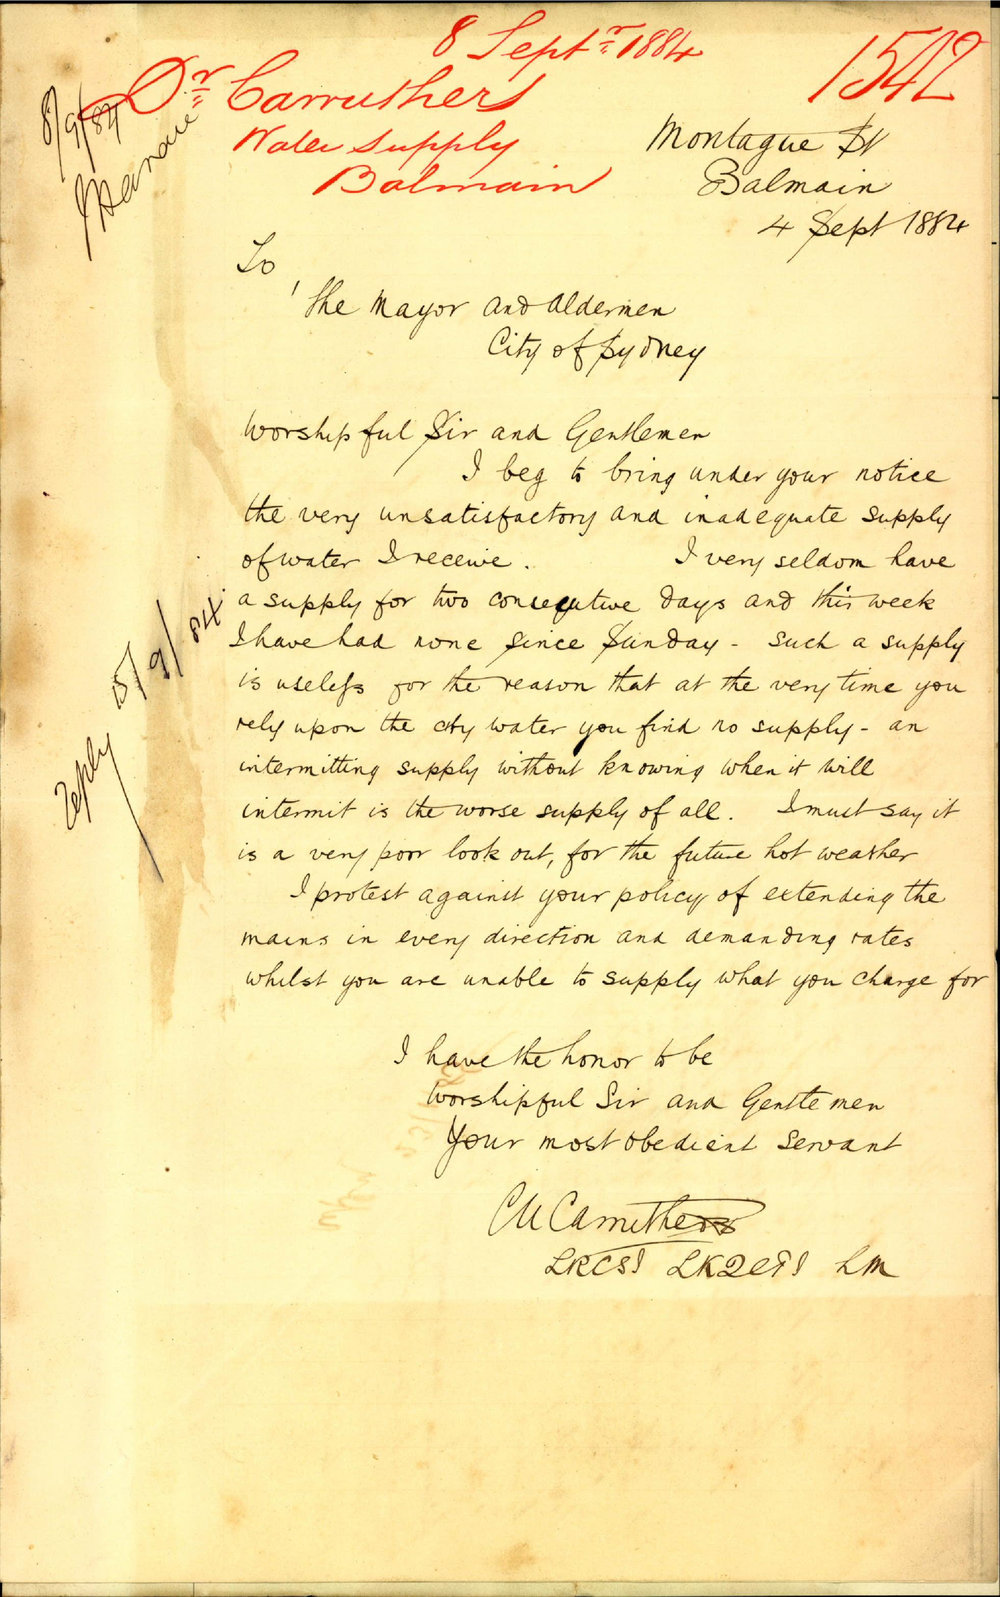 8 Septr 1884
1542
Dr Carruthers
Water Supply
Balmain
8/9/84
Montague St
Balmain
4 Sept 1884
To
The Mayor and Aldermen
City of Sydney
Worshipful Sir and Gentlemen
I beg to bring under your notice
the very unsatisfactory and inadequate supply
of water I receive. I very seldom have
a supply for two consecutive days and this week
I have had none since Sunday - such a supply
is useless for the reason that at the very time you
rely upon the city water you find no supply - an
intermitting supply without knowing when it will
intermit is the worse supply of all. I must say it
is a very poor look out, for the future hot weather
I protest against your policy of extending the
mains in every direction and demanding rates
whilst you are unable to supply what you charge for
Reply 15/9/84
I have the honor to be
Worshipful Sir and Gentlemen
Your most obedient Servant
Carruthers
LRCSI LKQCPI LM